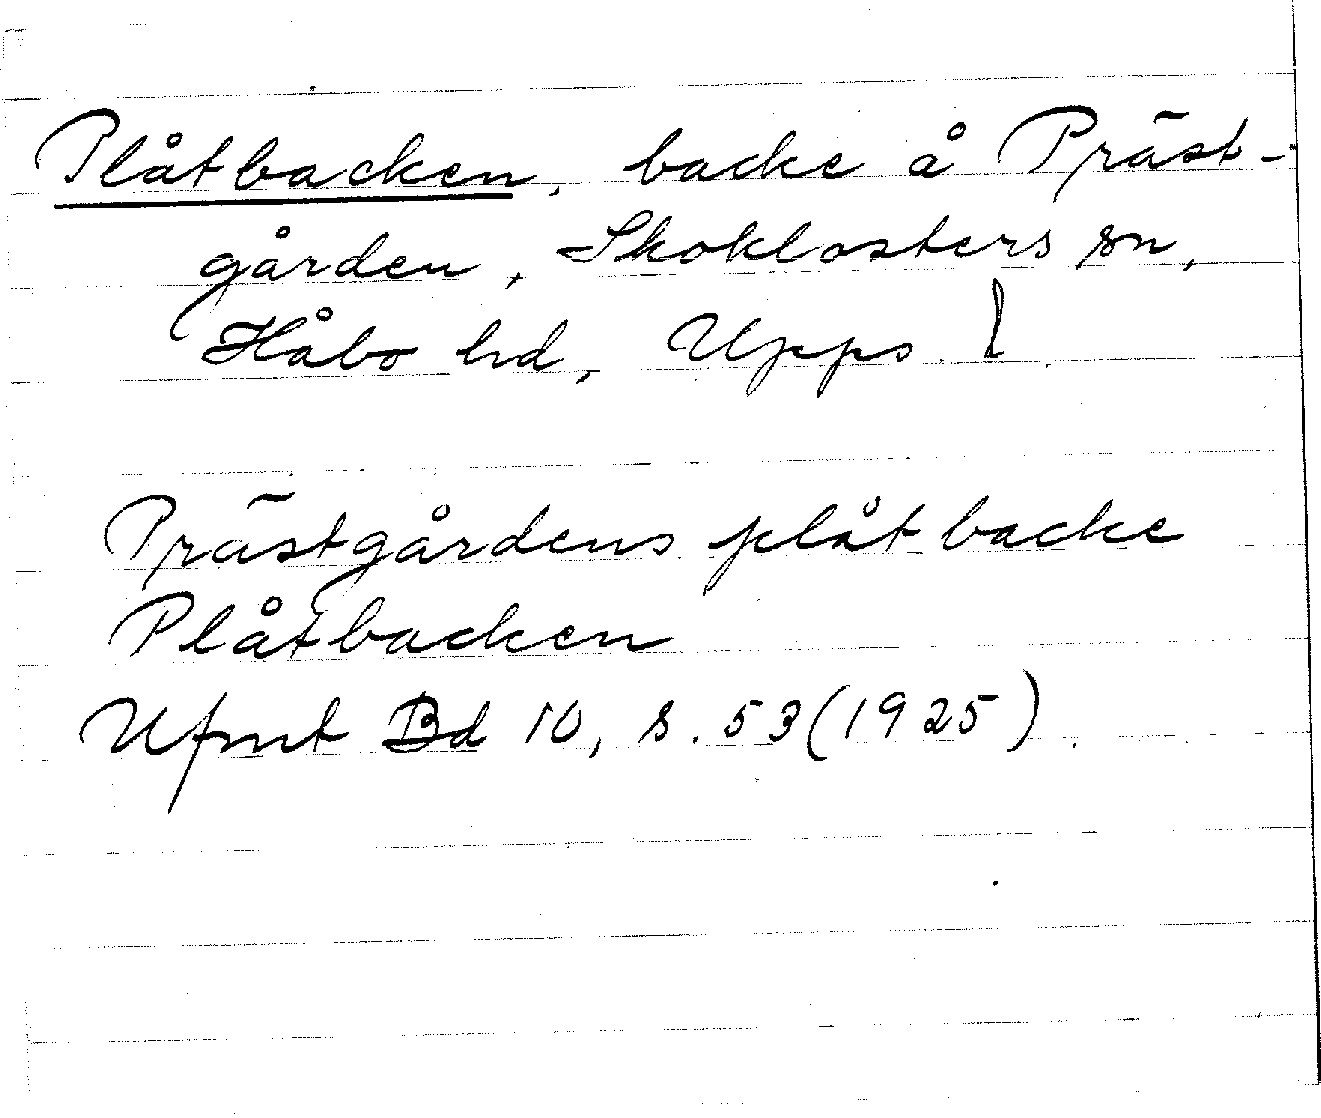 Plåtbacken, backe å Präst-
gården, Skoklosters sn,
Håbo hd, Upps. l.
Prästgårdens plåtbacke
Plåtbacken
Ufmt Bd 10, s. 53 (1925)